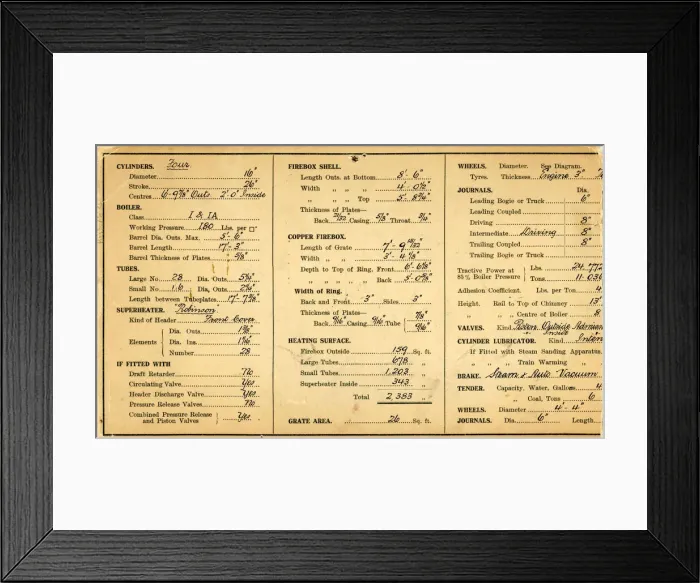 CYLINDERS. Four
Diameter 16"
Stroke 26"
Centres Outs 2'·0" Inside
BOILER.
Class I & IA
Working Pressure 180 Lbs. per □"
Barrel Dia. Outs. Max. 5'·6"
Barrel Length 17'·3"
Barrel Thickness of Plates 5/8"
TUBES.
Large No. 28 Dia. Outs.
Small No. Dia. Outs.
Length between Tubeplates
SUPERHEATER. "Robinson"
Kind of Header Front Cover
Elements Dia. Outs.
Dia. Ins.
Number 28
IF FITTED WITH
Draft Retarder No
Circulating Valve Yes
Header Discharge Valve Yes
Pressure Release Valves No
Combined Pressure Release and Piston Valves Yes
FIREBOX SHELL.
Length Outs. at Bottom 8'·6"
Width " " " 4'·0½"
" " " Top
Thickness of Plates—
Back Casing 5/8" Throat
COPPER FIREBOX.
Length of Grate
Width " "
Depth to Top of Ring, Front
" " " " " Back
Width of Ring.
Back and Front 3" Sides 3"
Thickness of Plates—
Back 9/16" Casing 9/16" Tube 7/8" 9/16"
HEATING SURFACE.
Firebox Outside 159 Sq. ft.
Large Tubes 678 "
Small Tubes 1,203 "
Superheater Inside 343 "
Total 2,383 "
GRATE AREA. 26 Sq. ft.
WHEELS. Diameter. See Diagram.
Tyres. Thickness Engine 3"
JOURNALS. Dia.
Leading Bogie or Truck 6"
Leading Coupled
Driving 8"
Intermediate Driving 8"
Trailing Coupled 8"
Trailing Bogie or Truck
Tractive Power at 85% Boiler Pressure Lbs. 24·772
Tons 11·036
Adhesion Coefficient. Lbs. per Ton 4
Height. Rail to Top of Chimney 13'
" " Centre of Boiler 8
VALVES. Kind Piston Outside Admission Inside
CYLINDER LUBRICATOR. Kind
If Fitted with Steam Sanding Apparatus
" " " Train Warming "
BRAKE. Steam & Auto. Vacuum
TENDER. Capacity, Water, Gallons 4
" Coal, Tons 6
WHEELS. Diameter 4'·4"
JOURNALS. Dia. 6" Length